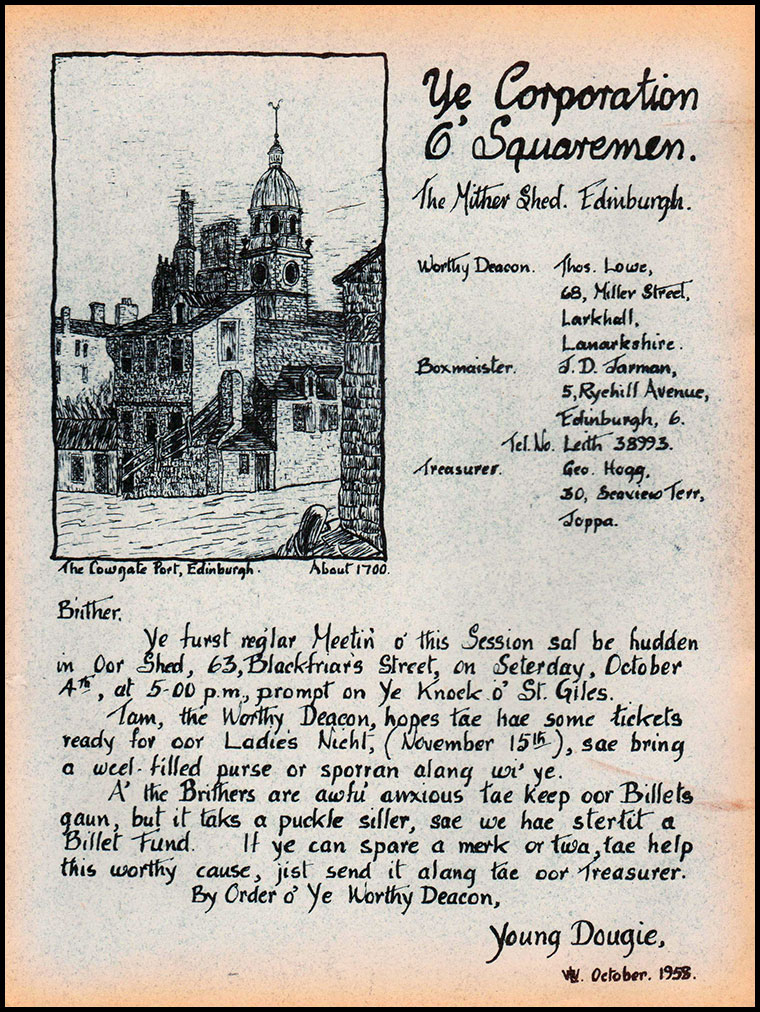 Ye Corporation
O' Squaremen.
The Mither Shed. Edinburgh.
Worthy Deacon. Thos. Lowe,
68, Miller Street,
Larkhall,
Lanarkshire.
Boxmaister. J. D. Jarman,
5, Ryehill Avenue,
Edinburgh, 6.
Tel. No. Leith 38993.
Treasurer. Geo. Hogg,
30, Seaview Terr,
Joppa.
The Cowgate Port, Edinburgh. About 1700.
Brither,
Ye furst reg'lar Meetin' o' this Session sal be hudden
in Oor Shed, 63, Blackfriar's Street, on Seterday, October
4th, at 5-00 p.m., prompt on Ye Knock o' St. Giles.
Tam, the Worthy Deacon, hopes tae hae some tickets
ready for oor Ladie's Nicht, (November 15th), sae bring
a weel-filled purse or sporran alang wi' ye.
A' the Brithers are awfu' anxious tae keep oor Billets
gaun, but it taks a puckle siller, sae we hae stertit a
Billet Fund. If ye can spare a merk or twa, tae help
this worthy cause, jist send it alang tae oor Treasurer.
By Order o' Ye Worthy Deacon,
Young Dougie,
October. 1958.